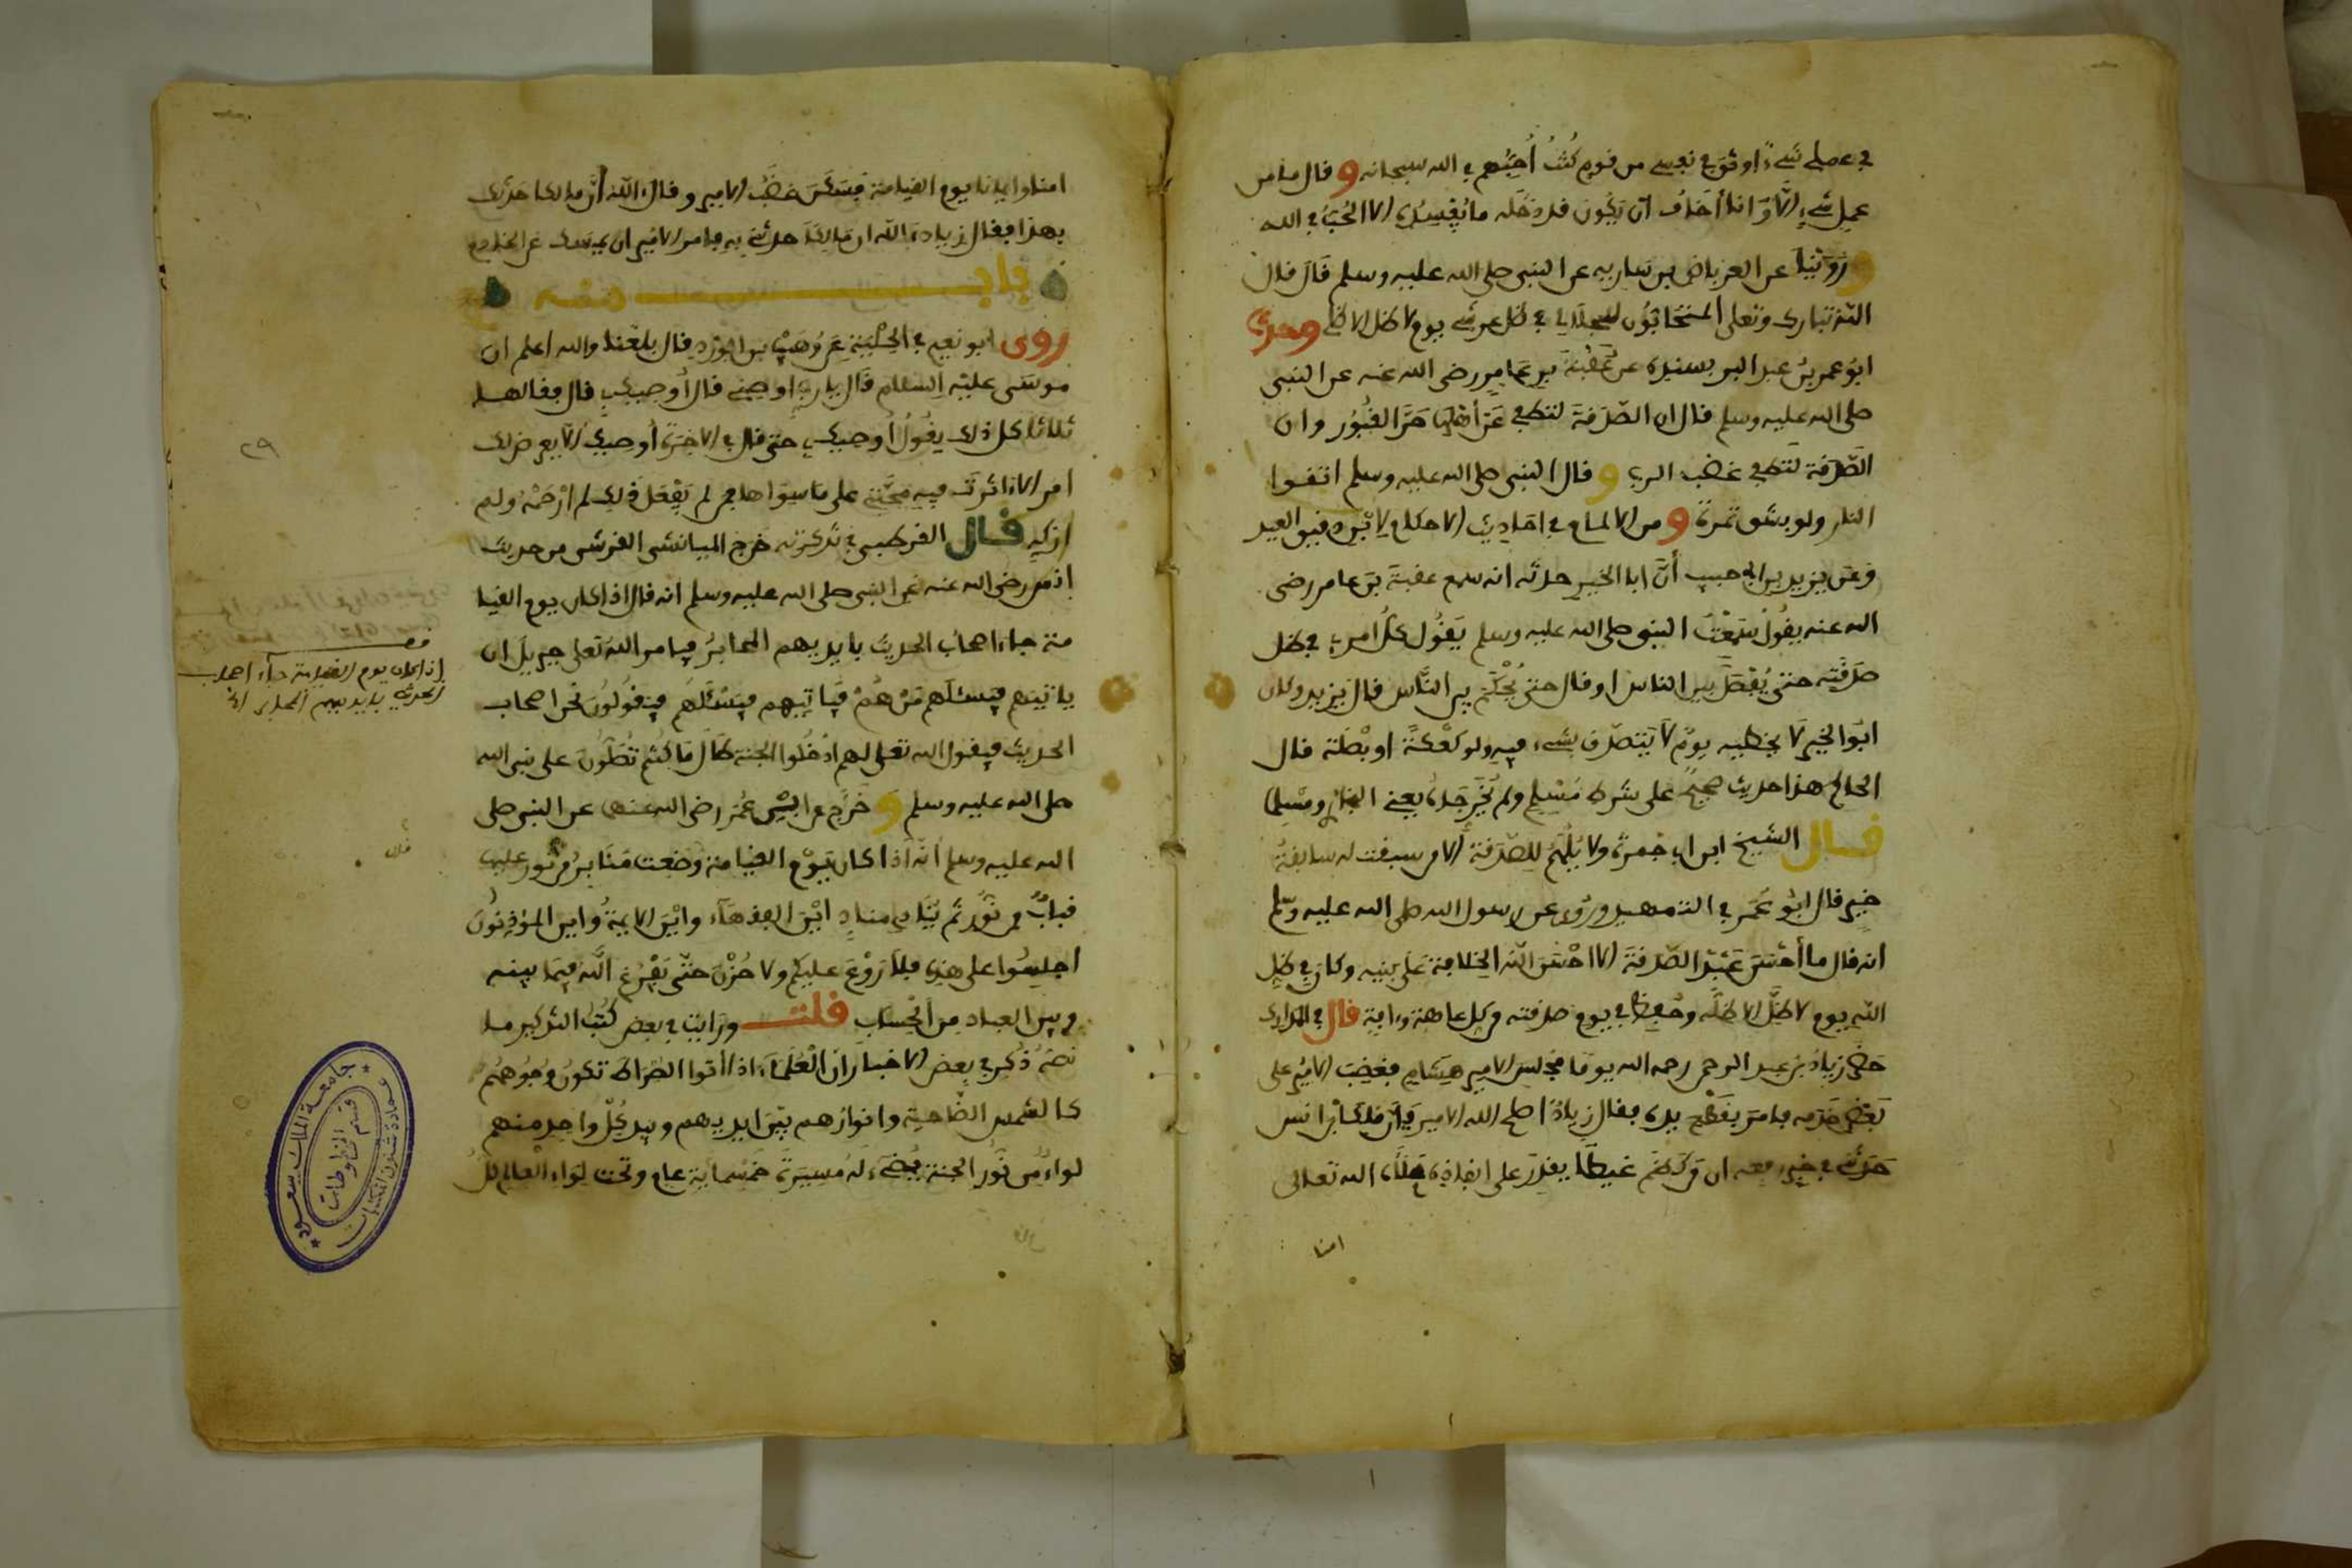 في عملي شيءٌ اوثق في نفسي من قوم كُنْتُ أُحِبُّهم في الله سبحانه وقال ما من
عمل شيءٍ الاّ وَانا أخاف ان يَكُونَ قد دخَله ما يُفْسِدُه الا الحُبَّ في الله
ورَوَيْنا عن العرباض بن سَارية عن النبي صلى الله عليه وسلم قَالَ قال
اللّه تبارك وتعلى المتحَابُّون لجلالي في ظل عرشي يوم لا ظل الا ظلي وحدث
ابُو عمر بنُ عبد البر بسنده عن عُقْبَةَ بنِ عَامِرٍ رضي الله عنه عن النبي
صلى الله عليه وسلم قال ان الصّدَقةَ لتطفي عَنْ أهْلِهَا حَرَّ القُبُور وان
الصَّدَقة لتطفي غضب الرب وقال النبي صلى الله عليه وسلم اتقوا
النار ولو بشق تمرة ومن الالماع في احَادِيث الاحكام لابْنِ دقيق العيد
وَعَن يزيد بن ابي حبيب أنّ ابا الخير حدثه انه سمع عقبةَ بنَ عامر رضي
الله عنه يقُولُ سَمِعْتُ النبي صلى الله عليه وسلم يَقُول كلُّ امرئ في ظل
صدَقَتِه حتى يُفْصَلَ بين الناس او قال حتى يُحْكَمَ بين النَّاس قال يزيد وكان
ابُو الخير لا يخطيه يومٌ لا يَتَصدّق بشيء فيه ولو كَعْكَةً او بصَلَة قال
الحاكم هذا حديث صحيحٌ على شرط مُسْلِم ولم يُخْرجَاه يعني البخاري ومسْلما
قال الشيخ ابن ابي جَمرة ولا يُلْهَمُ لِلصّدَقة إلا من سبقت له سابقةُ
خيرٍ قال ابُو عُمَر في التمهيد ورُوِي عن رسول الله صلى الله عليه وسلم
انه قال ما أحْسَنَ عَبْدٌ الصّدقةَ الا احْسَنَ اللّه الخلافة على بنيه وكان في ظل
اللّهِ يوم لا ظِلّ الا ظلُّه وحُفِظَ في يوم صدقته من كل عاهة وءافةٍ قال في المدارك
حضر زيادُ بن عبد الرحمن رحمه الله يوما مجلسَ الامير هِشَامٍ فغضِبَ الامِيُر على
بَعْضِ خدَمِه فامَر بقَطْع يده فقال زيادٌ اصلح الله الامير فإنّ مَالكَ بْن انس
حَدَّثني في خبر رفعه ان مَن كظَمَ غيظًا يقدِرُ على انفاذِه مَلَأَه الله تعالى
امنا
امنا وايمانا يوم القيامة فسَكَنَ غضَبُ الامِير وقال ءاللّه إنّ مالكا حدّثك
بهذا فقال زياد ءاللّه ان مَالِكًا حدثني به فامر الامِير ان يمسك عن الخادم
باب منه
روى ابو نعيم في الحِلْيَةِ عَنْ وُهَيْبِ بن الوَرْدِ قال بلغنا والله اعلم ان
موسَى عليْه السلام قال يا ربِّ اوصِنِي قال أُوصيكَ بِي قال فقالها
ثلاثا كل ذلك يقُولُ أُوصيك بي حتى قال في الاخِرَة أوصيك بي الاّ يعرض لك
امر الا ءاثرتَ فيه محبَّتِي على مَا سوَاها فمن لم يَفْعَلْ ذلِك لم ارْحَمْهُ ولم
ازكهِ قال القرطبي في تذكرته خرَّج الميانشي القرشي من حديث
انس رضي الله عنه عن النبي صلى الله عليه وسلم انه قال اذا كان يوم القيا
مة جاء اصحابُ الحديث بايديهم المحابرُ فيامر اللهُ تعلى جبريلَ ان
ياتيَهم فيَسْئلَهم مَنْ هُمْ فيَاتِيهِم فيَسْئلهُم فيَقُولُونَ نحن اصحاب
الحديث فيقول الله تعلى لهم ادْخُلُوا الجنة طَالَ مَا كُنْتُم تُصَلّونَ على نبي الله
صلى الله عليه وسلم وَخَرَّجَ عن ابْنِ عُمَر رضي الله عنهما عن النبي صلى
الله عليه وسلم انّه اذا كان يَوْمُ القيامة وُضِعت مَنَابِر من نُور عليها
قبابٌ من نُورٍ ثم يُنادِي منادٍ ايْنَ الفقهَآء وايْنَ الايمةُ واين المؤذِنُونَ
اجلِسُوا على هذِه فلا رَوْعَ عليكم ولا حُزْنَ حتّى يَفْرُغَ اللّه فِيمَا بينه
وبين العباد من الْحساب قلت ورَأيْت في بعض كُتُب التذكير ما
نصّهُ ذُكِر في بعض الاخبار ان الْعُلَمَاءَ اذا أتَوا الصِّرَاطَ تكونُ وُجُوهُهُمْ
كالشمس الضَّاحِيةِ وانوارُهم بيْنَ ايديهم وبِيَدِ كُلّ واحِدٍ منهم
لواءٌ من نُورُ الجنة يُضيءُ لَهُ مَسِيَرةَ خَمْسمايَةِ عام وتحت لِوَاء الْعالم كلُّ
٢٩
قف
إذا كان يوم القيامة جاء اصحاب
الحديث بايديهم المحابر الخ
جامعة الملك سعود
عمادة شئون المكتبات
قسم المخطوطات